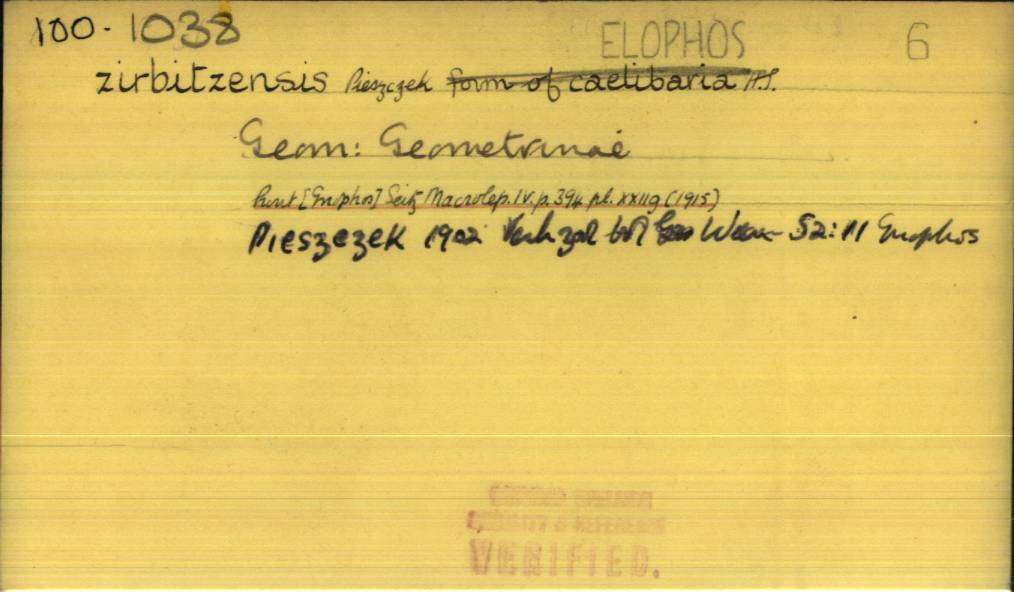 100-1038 ELOPHOS 6
zirbitzensis Pieszczek form of caelibaria H.S.
Geom: Geometrinae
Prout [Gnophos] Seitz Macrolep. IV. p. 394 pl. XXIIg (1915)
Pieszczek 1902 Verh zool bot Ges Wien 52: 11 Gnophos
VERIFIED.